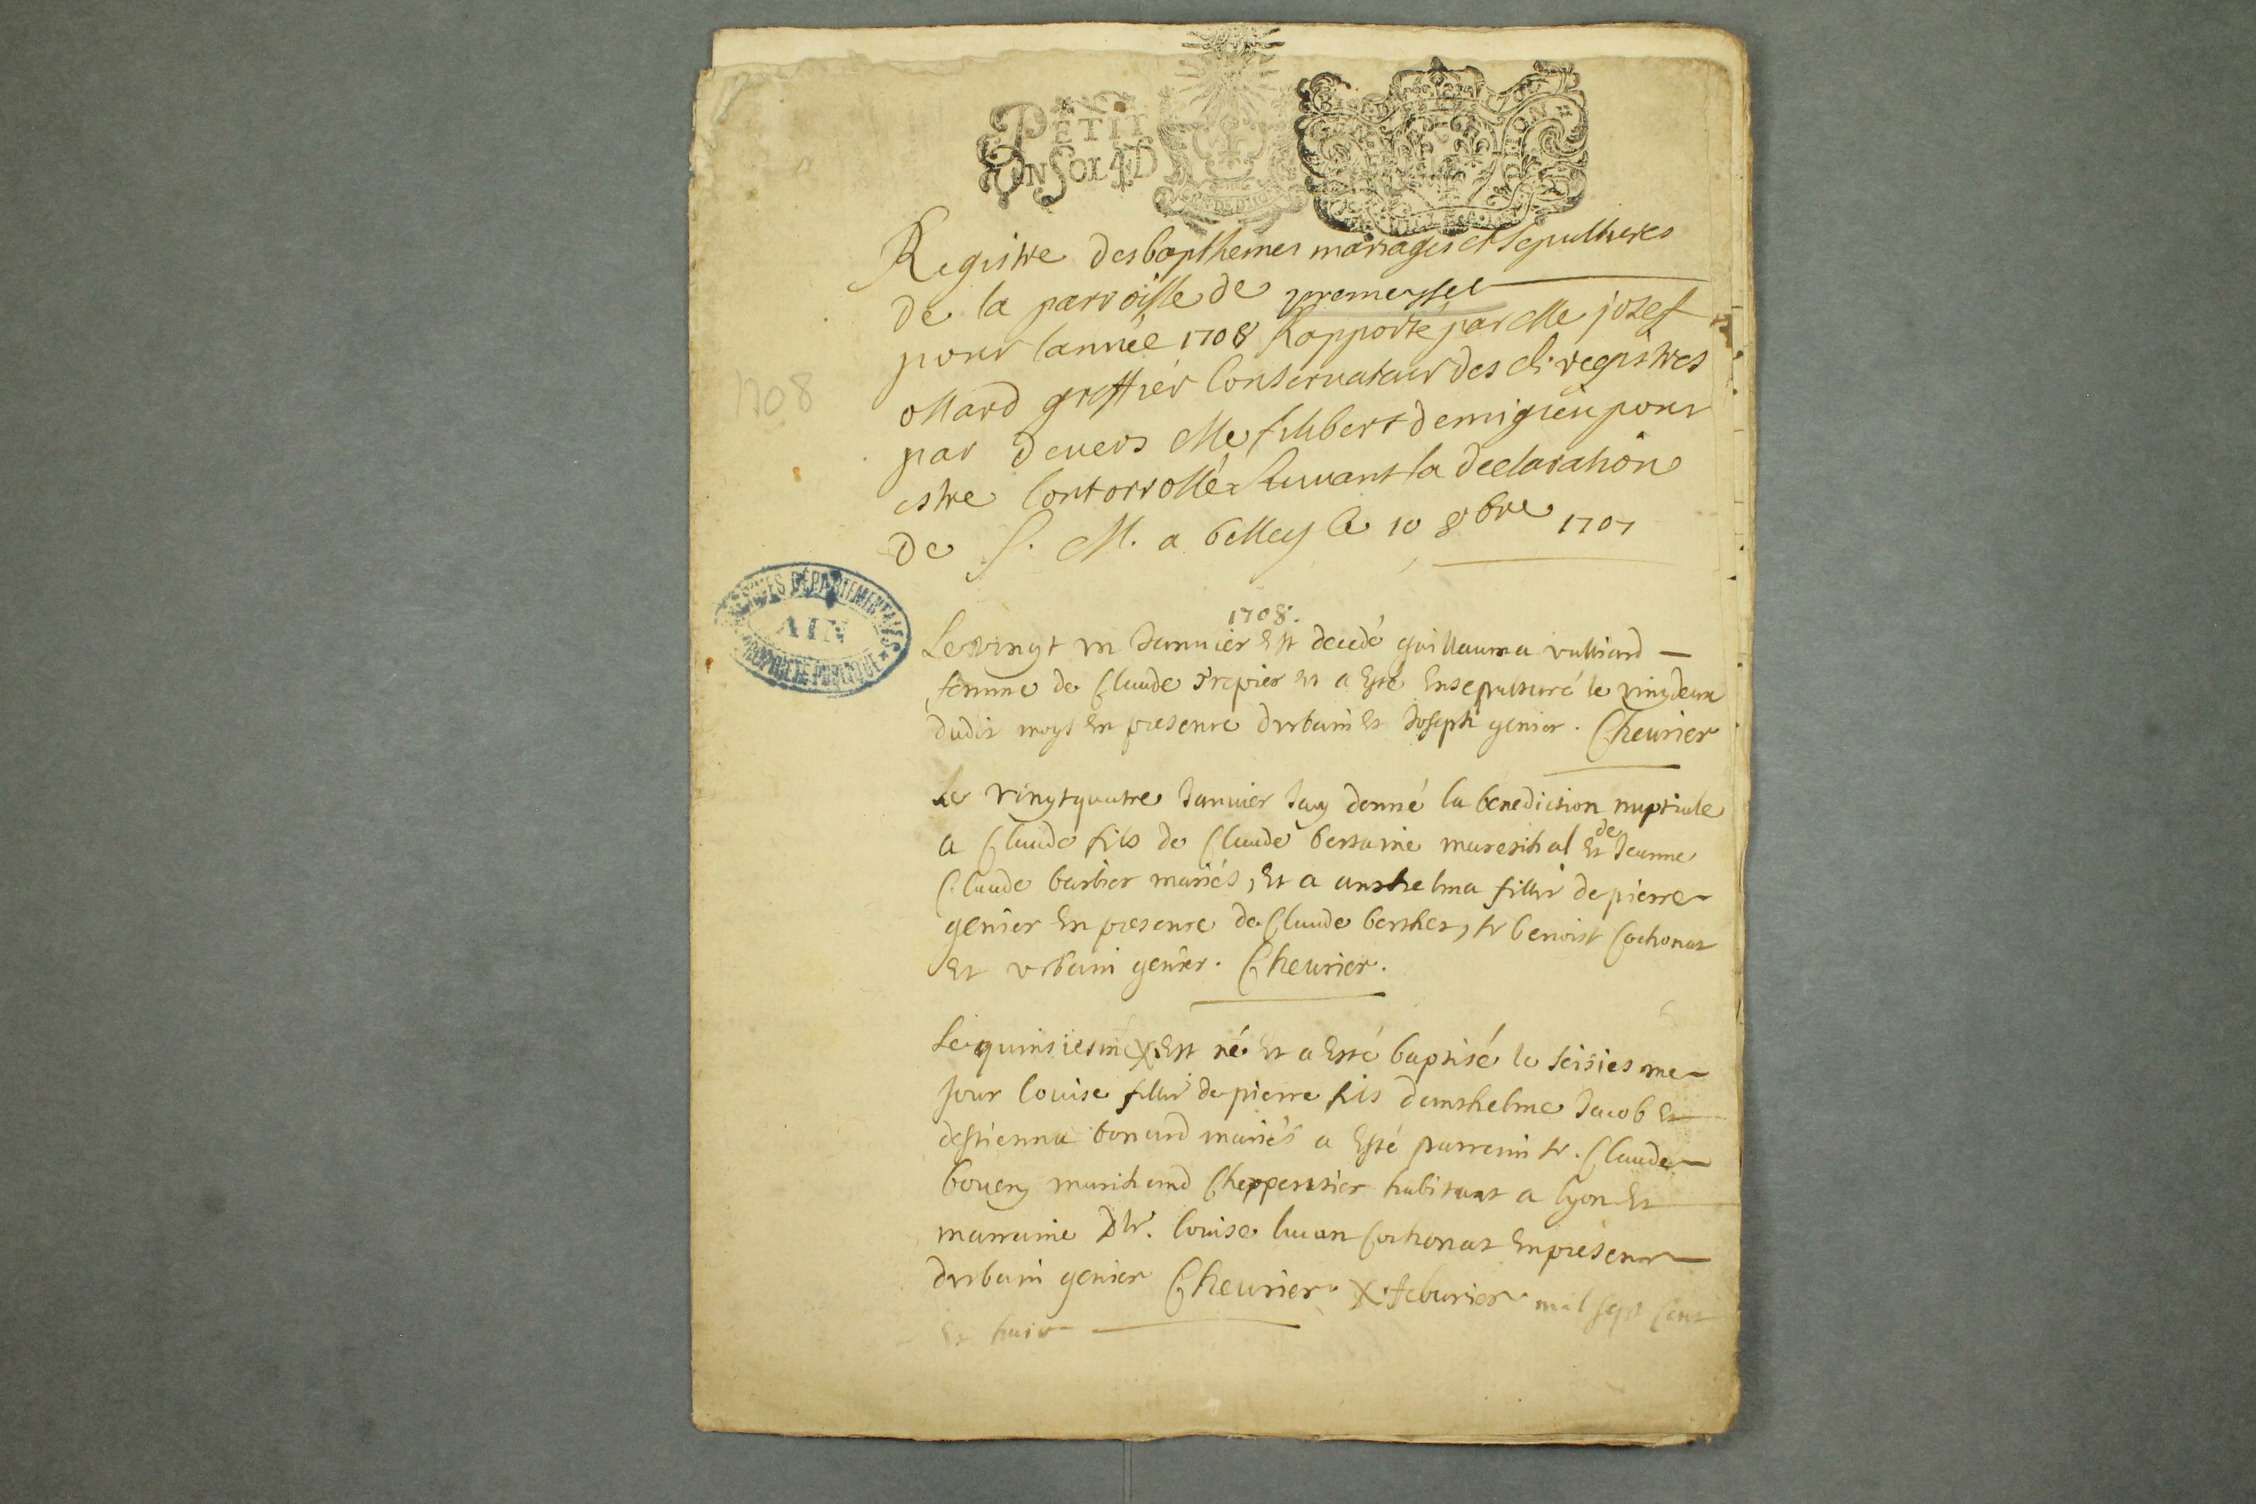 PETIT
UN SOL 4 D
Registre des bapthemes mariages et sepultures
de la parroisse de premeyssel
pour lannée 1708 Rapporté par Me josef
ollard greffier Conservateur des d. registres
par devers Me filibert demigieu pour
estre Contorrollé Suivant la declaration
de S. M. a belley le 10 8bre 1707
1708
ARCHIVES DÉPARTEMENTALES
AIN
PROPRIÉTÉ PUBLIQUE
1708.
Le vingt un Janvier Est decedé guillauma vulliard
femme de Claude Trepier et a Esté Ensepulturé le vingdeux
dudit moys En presence durbain Et Joseph genier. Cheurier
Le vingtquatre Janvier Jay donné la benediction nuptiale
a Claude fils de Claude bertaine mareschal Et de Jeanne
Claude barbier mariés, Et a anthelma fillie de pierre
genier En presence de Claude berthet, sr benoist Cochonat
Et urbain genier. Cheurier.
Le quinsiesme X Est né Et a Esté baptisé le seisiesme
jour louise fillie de pierre fils danthelme Jacob Et
destienna bonard mariés a Esté parrein sr. Claude
bovery marchand Cheppentier habitant a lyon Et
marraine Dlle. louise lucan Cochonat En presence
durbain genier Cheurier X feburier mil sept Cent
Et huit